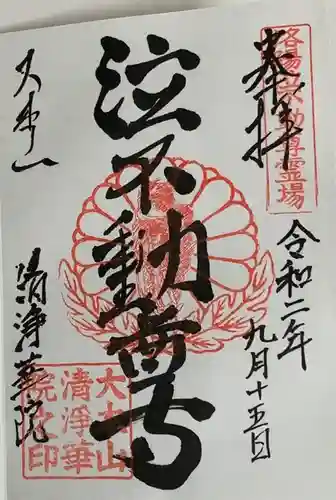 奉拝
洛陽六助尊霊場
令和二年
九月十五日
泣不動尊
大本山
清浄華院
大本山
清浄華
院之印